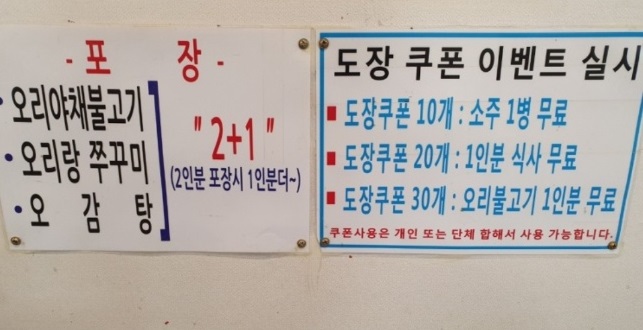 - 포 장 -
• 오리야채불고기
• 오리랑 쭈꾸미
• 오 감 탕
" 2+1 "
(2인분 포장시 1인분더~)
도장 쿠폰 이벤트 실시
■ 도장쿠폰 10개 : 소주 1병 무료
■ 도장쿠폰 20개 : 1인분 식사 무료
■ 도장쿠폰 30개 : 오리불고기 1인분 무료
쿠폰사용은 개인 또는 단체 합해서 사용 가능합니다.